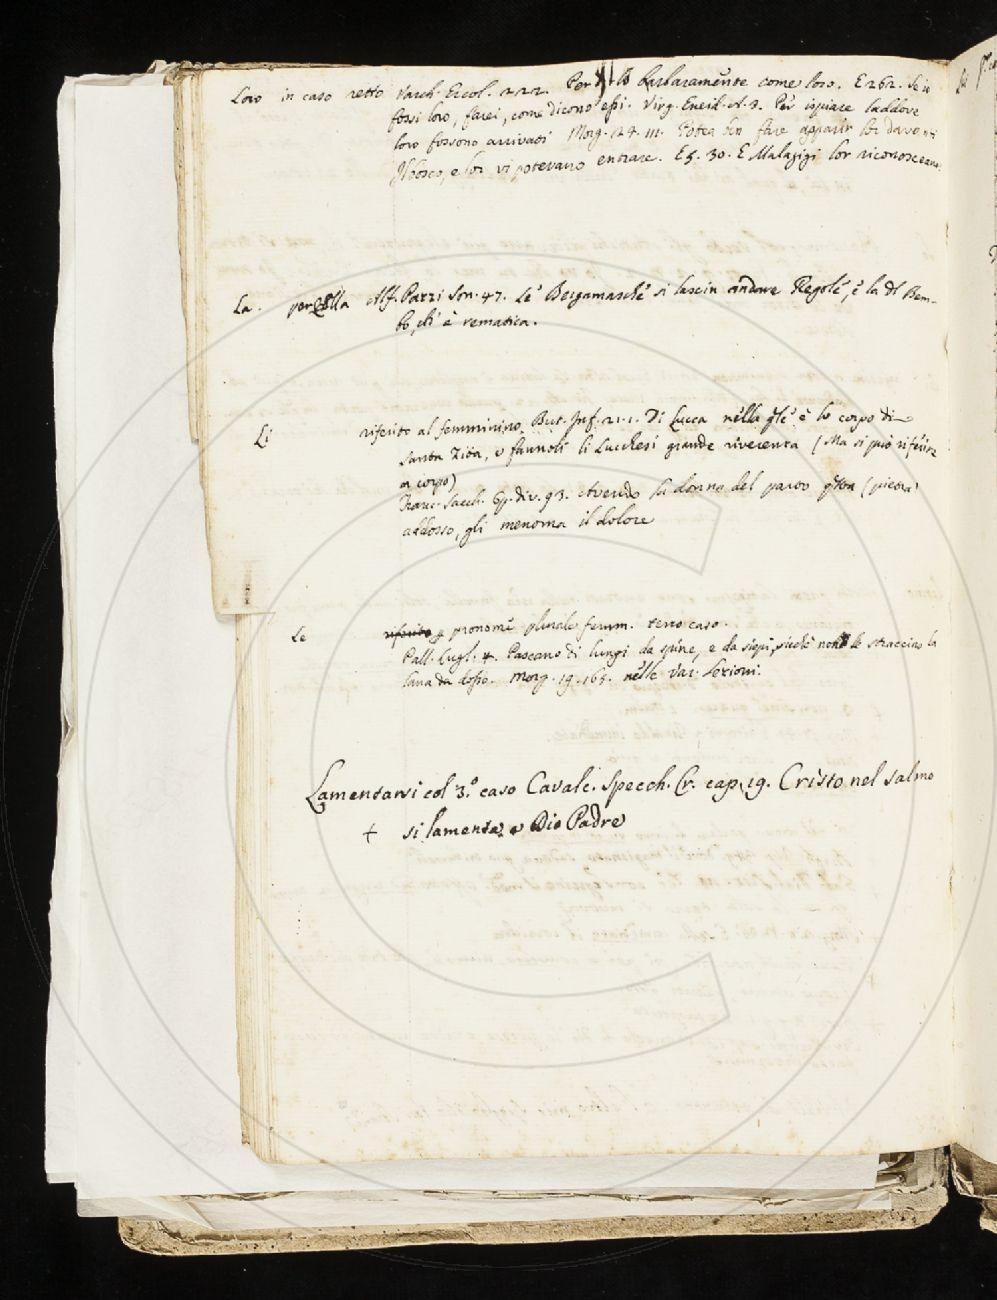 Loro in caso retto Varch. Ercol. 222. Per lo barbaramente come loro. E 262. Se io
fossi loro, farei, come dicono essi. Virg. Eneid. A. 3. Per ispiare laddove
loro fossono arrivati Morg. 24. 111. Potea ben fare apparir lor davanti
Il bosco, e lor vi potevano entrare. E 5. 30. E Malagigi lor riconosceano.
La. per ella Alf. Pazzi Son. 47. Le Bergamasche si lascin andare Regole, e la del Bem-
bo, ch' è rematica.
Li riferito al femminino But. Inf. 21. 1. Di Lucca nella qle è lo corpo di
santa Zita, e fannoli li Lucchesi grande riverenza (Ma si può riferire
a corpo)
Franc. Sacch. Op. div. 93. Avendo la donna del parto qsta (pietra)
addosso, gli menoma il dolore
Le riferito pronome plurale femm. terzo caso.
Pall. Lugl. 4. Pascano di lungi da spine, e da siepi, sicchè non le straccino la
lana da dosso. Morg. 19. 165. nelle Var. Lezioni.
Lamentarsi col 3.° caso Cavalc. Specch. Cr. cap. 19. Cristo nel salmo
+ si lamenta a Dio Padre